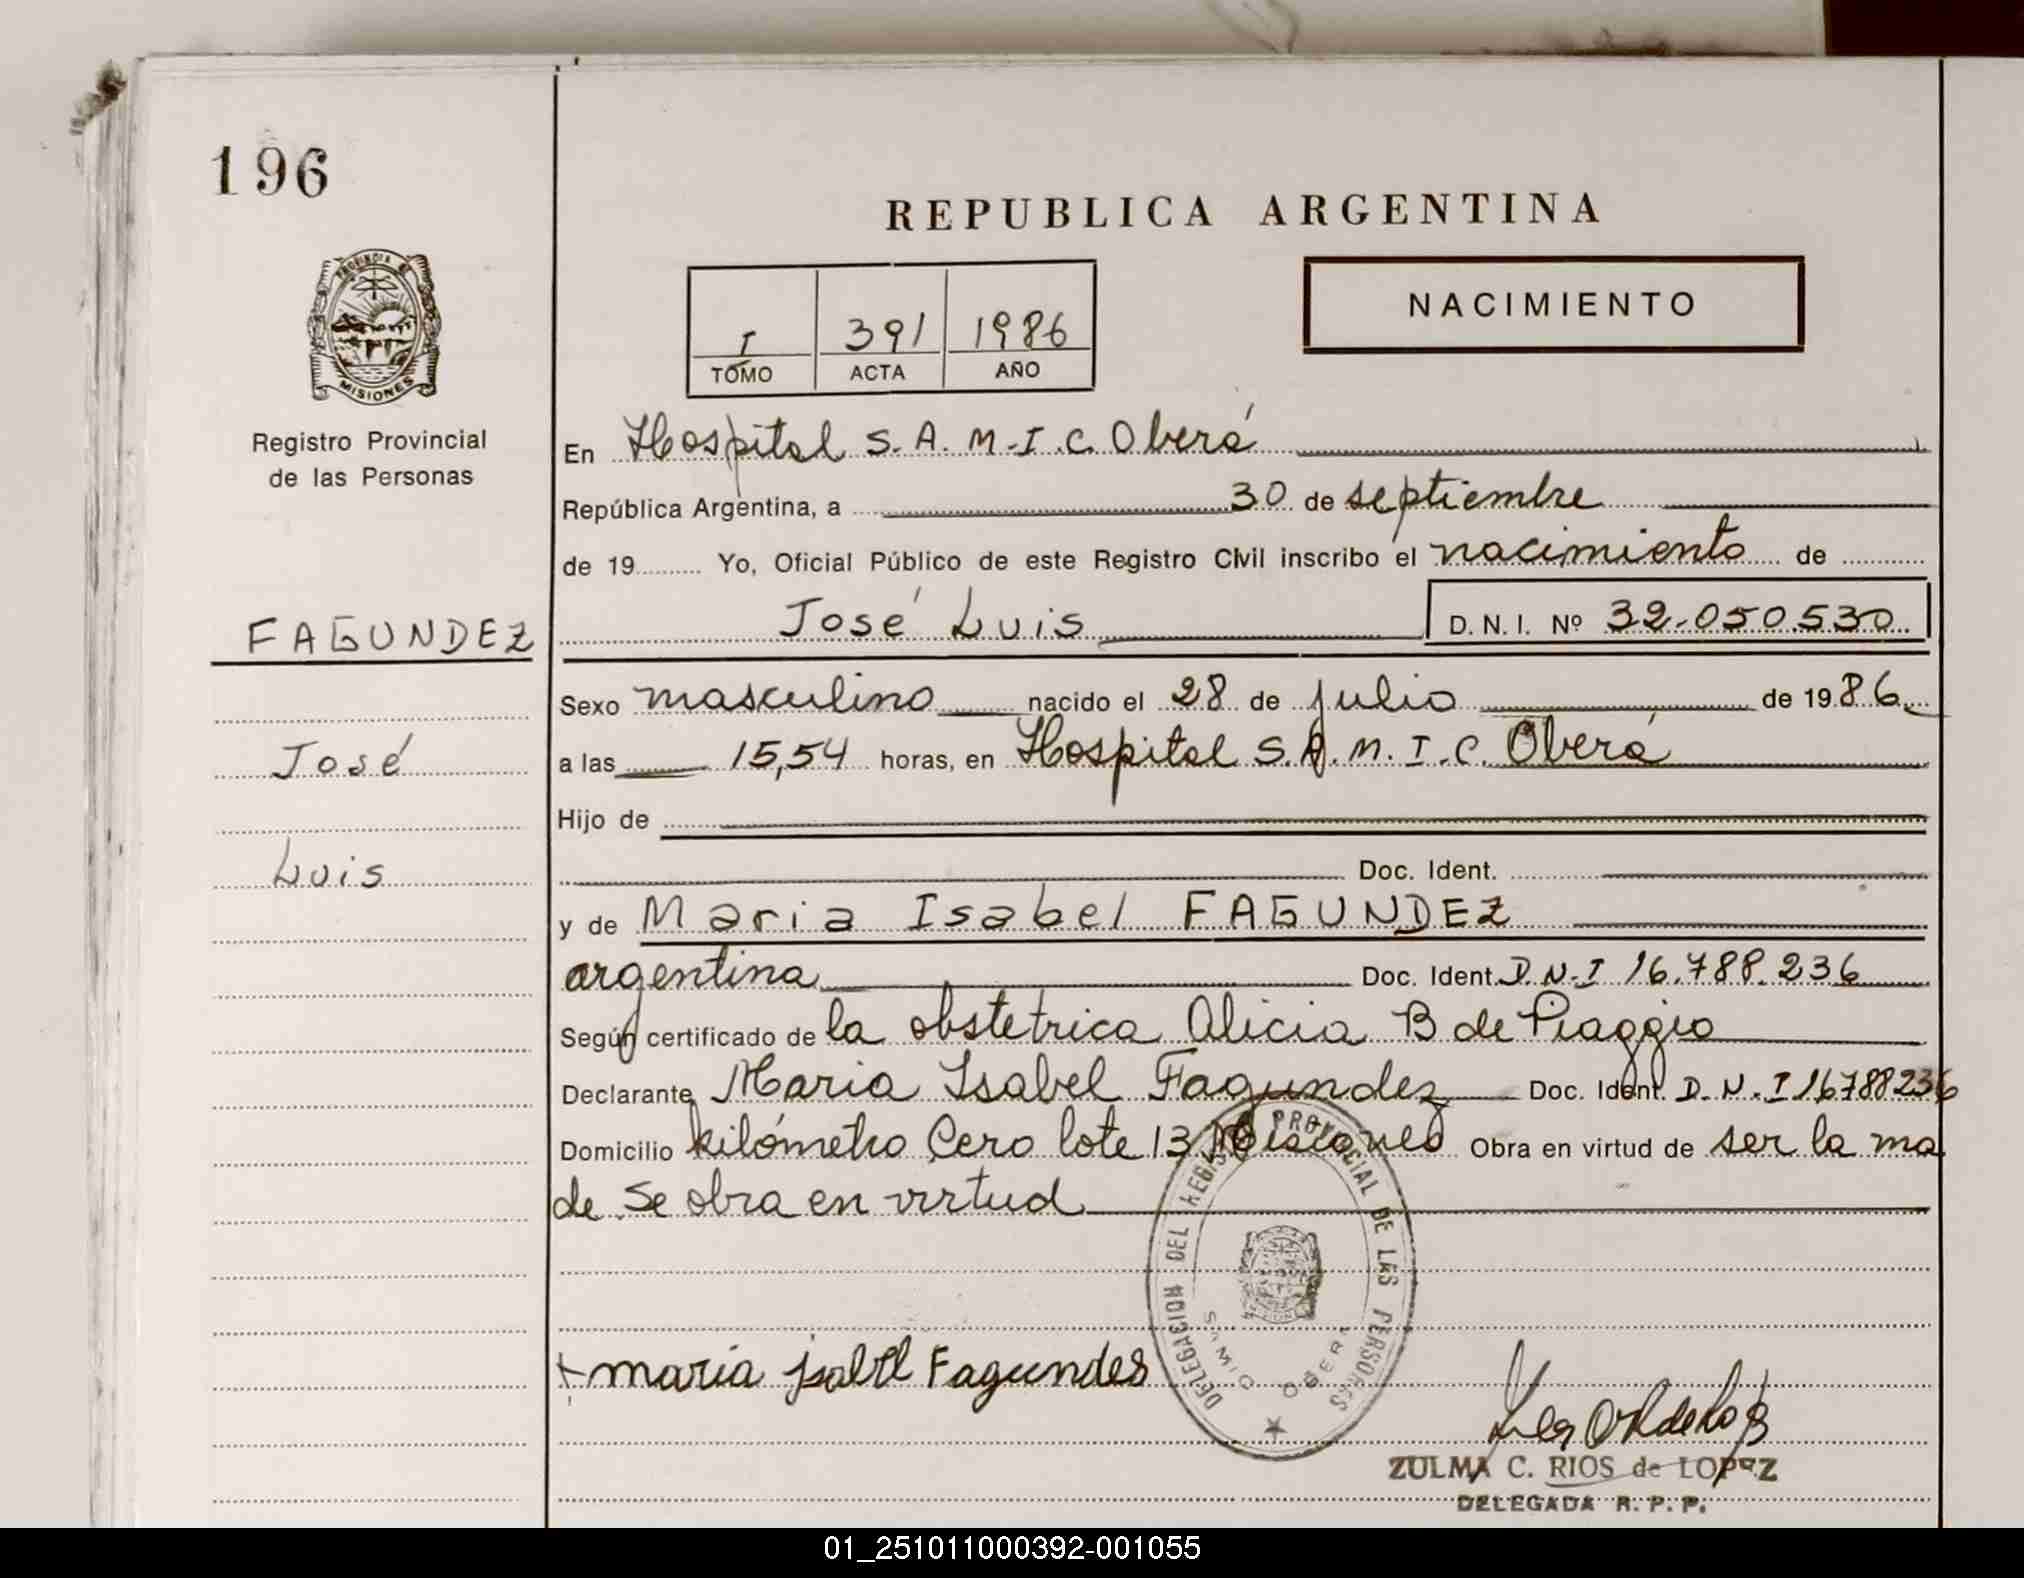 196
REPUBLICA ARGENTINA
PROVINCIA DE
MISIONES
I 391 1986
TOMO ACTA AÑO
NACIMIENTO
Registro Provincial
de las Personas
En Hospital S.A.M.I.C. Oberá
República Argentina, a 30 de septiembre
de 19 Yo, Oficial Público de este Registro Civil inscribo el nacimiento de
FAGUNDEZ
José Luis D.N.I. Nº 32.050530
Sexo masculino nacido el 28 de julio de 1986
José
a las 15,54 horas, en Hospital S.A.M.I.C. Oberá
Hijo de
Luis
Doc. Ident.
y de Maria Isabel FAGUNDEZ
argentina Doc. Ident. D.N.I 16.788.236
Según certificado de la obstetrica Alicia B de Piaggio
Declarante Maria Isabel Fagundez Doc. Ident. D.N.I 16788236
Domicilio kilómetro Cero lote 13 Misiones Obra en virtud de ser la ma
de se obra en virtud
DELEGACION DEL REGISTRO PROVINCIAL DE LAS PERSONAS
SAMIC OBERA
maria isabel Fagundes
ZULMA C. RIOS de LOPEZ
DELEGADA R.P.P.
01_251011000392-001055